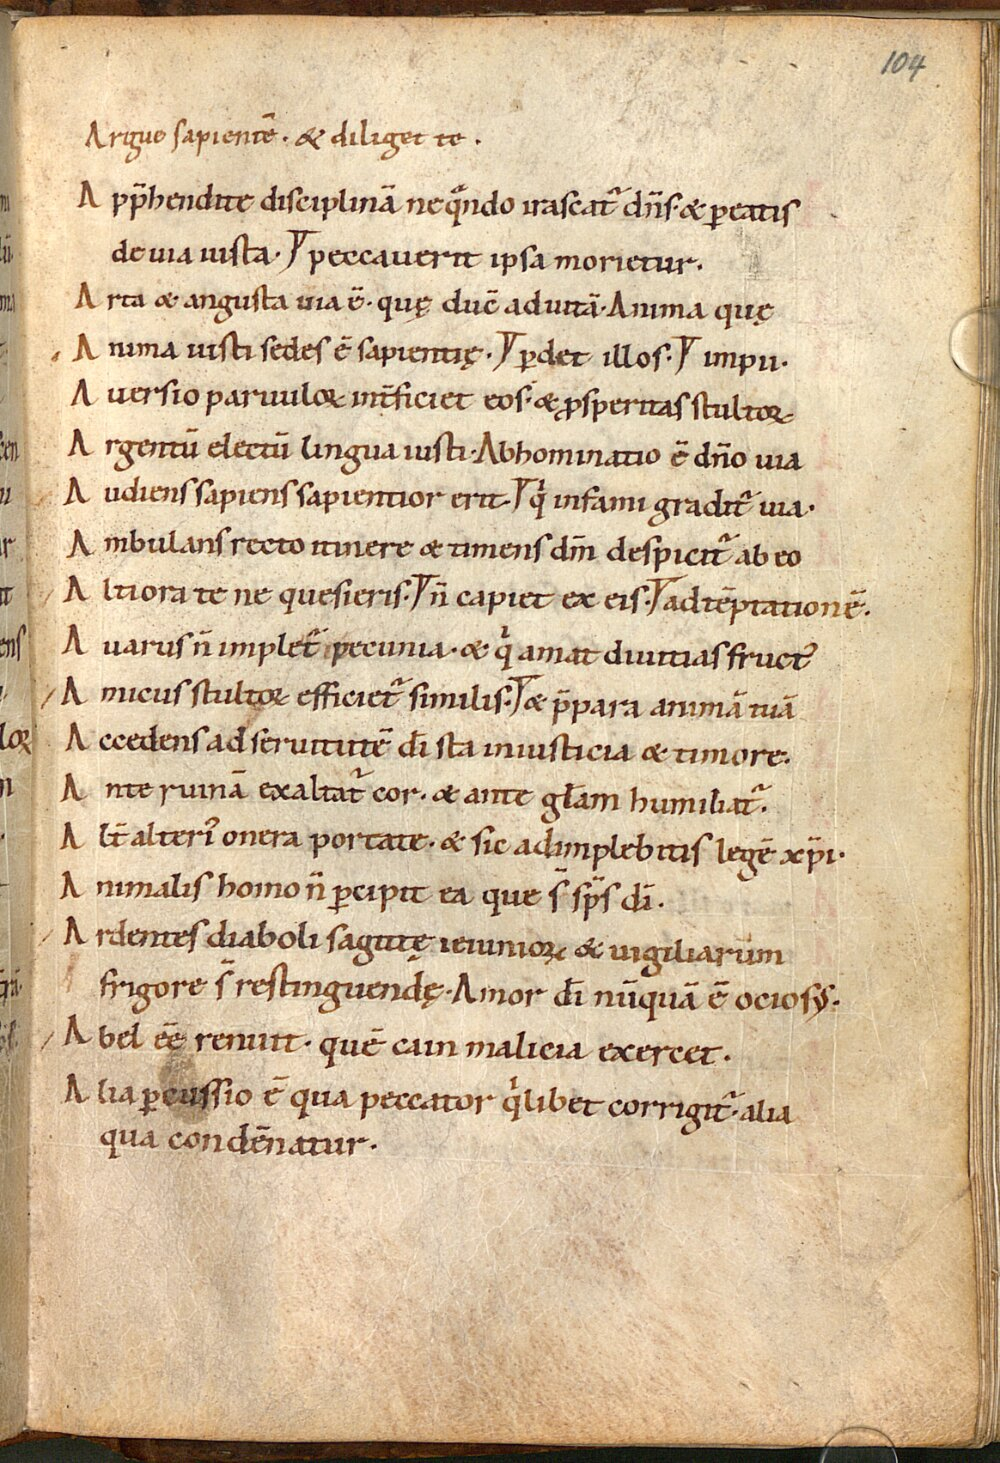 104
Argue sapientē· & diliget te·
App̄hendite disciplinā neq̊ndo irascat᷒ dn̄s· & ꝑeatis
de uia iusta· peccauerit ipsa morietur·
Arta & angusta uia ē· quę duc̄ aduitā· Anima quę
Anima iusti sedes ē sapientię· ꝑdet illos· impii·
Auersio paruuloꝝ int̄ficiet eos· & ꝓsperitas stultoꝝ
Argentū electū lingua iusti· Abhominatio ē dn̄o uia
Audiens sapiens sapientior erit· qͥ infami gradit᷒ uia·
Ambulans recto itinere & timens dm̄ despicit᷒ ab eo
Altiora te ne quesieris· n̄ capiet ex eis· ad tēptationē·
Auarus n̄ implet᷒ pecunia· & qͥ amat diuitias fruct᷒
Amicus stultoꝝ efficiet᷒ similis· & p̄para animā tuā
Accedens ad seruitutē dī sta iniusticia & timore·
Ante ruinā exaltat᷒ cor· & ante gl̄am humiliat᷒·
Alt̄ alteriꝰ onera portate· & sic adimplebitis legē xp̄i·
Animalis homo n̄ ꝑcipit ea que s̄ sp̄s dī·
Ardentes diaboli sagittę ieiunioꝝ & uigiliarum
frigore s̄ restinguendę· Amor dī nūquā ē ociosꝰ·
Abel eē renuit· quē cain malicia exercet·
Alia ꝑcussio ē qua peccator qͥlibet corrigit᷒· alia
qua condēnatur·